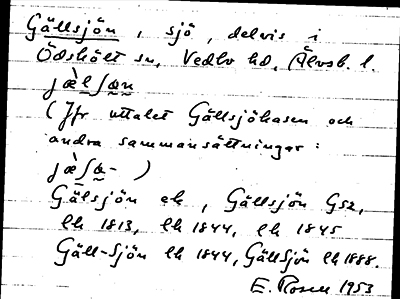 Gällsjön, sjö, delvis i
Ödskölt sn, Vedbo hd, Älvsb. l.
jæ̀lʃœn
(Jfr uttalet Gällsjöhasen och
andra sammansättningar:
jæ̀ʃœ- )
Gälsjön ek, Gällsjön Gsz,
lh 1813, lh 1844, lh 1845
Gäll-Sjön lh 1844, GällSjön lh 1888.
E. Rosell 1953